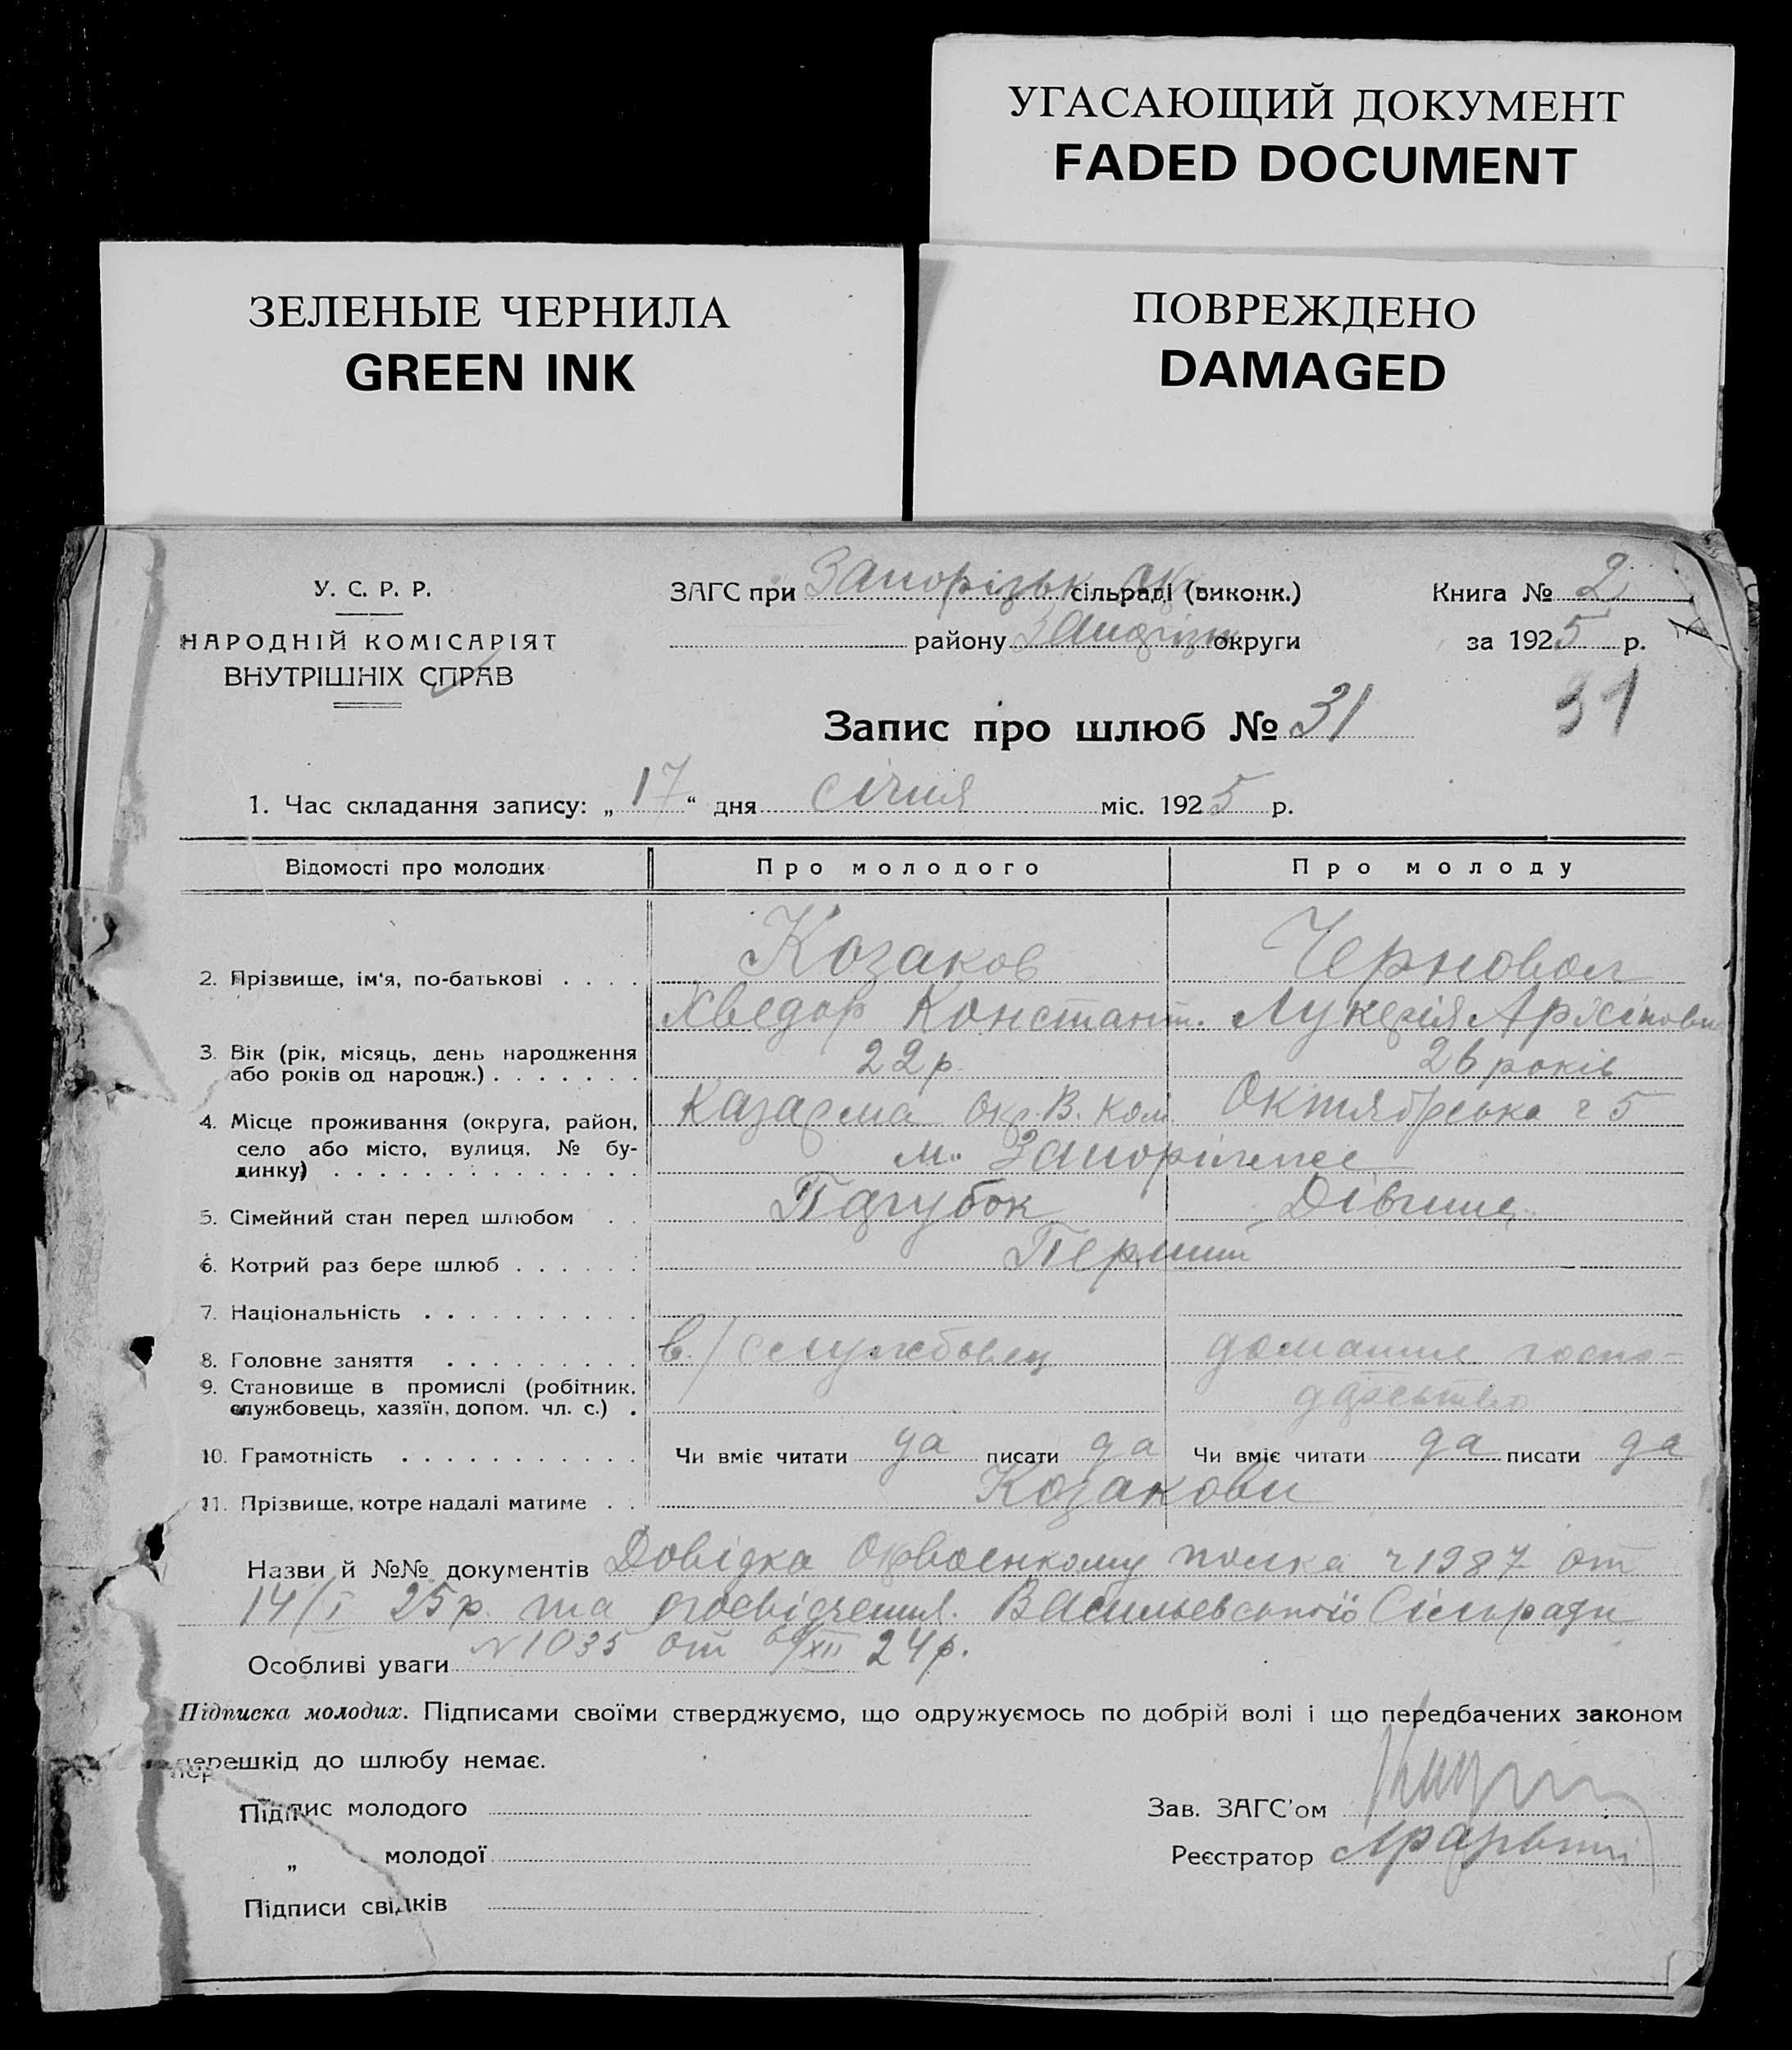 УГАСАЮЩИЙ ДОКУМЕНТ
FADED DOCUMENT
ЗЕЛЕНЫЕ ЧЕРНИЛА
GREEN INK
ПОВРЕЖДЕНО
DAMAGED
У. С. Р. Р.
НАРОДНІЙ КОМІСАРІЯТ
ВНУТРІШНІХ СПРАВ
ЗАГС при Запорізьк. сільраді (виконк.)
району Запорізьк округи
Книга № 2
за 1925 р.
Запис про шлюб № 31
31
1. Час складання запису: „17“ дня січня міс. 1925 р.
Відомості про молодих Про молодого Про молоду
2. Прізвище, ім'я, по-батькові . . . . Козаков Чернобол
Хведор Констант. Лукерія Архіповн
3. Вік (рік, місяць, день народження
або років од народж.) . . . . . . . 22 р 26 років
4. Місце проживання (округа, район, Казарма Окр. В. Ком. Октябрська ч 5
село або місто, вулиця, № бу-
динку) . . . . . . . . . . . . . м. Запоріжжє
5. Сімейний стан перед шлюбом . . Парубок Дівчина
6. Котрий раз бере шлюб . . . . . . Перший
7. Національність . . . . . . . . . .
8. Головне заняття . . . . . . . . . в./службовец домашне госпо-
9. Становище в промислі (робітник,
службовець, хазяїн, допом. чл. с.) . дарство
10. Грамотність . . . . . . . . . . . Чи вміє читати да писати да Чи вміє читати да писати да
11. Прізвище, котре надалі матиме . . Козакови
Назви й №№ документів Довідка Окрвоенкому полка ч 1987 от
14/I 25 р. та посвідчення. Васильевської Сільради
Особливі уваги N 1035 от /XII 24 р.
Підписка молодих. Підписами своїми стверджуємо, що одружуємось по добрій волі і що передбачених законом
перешкід до шлюбу немає.
Підпис молодого
„ молодої
Підписи свідків
Зав. ЗАГС'ом
Реєстратор